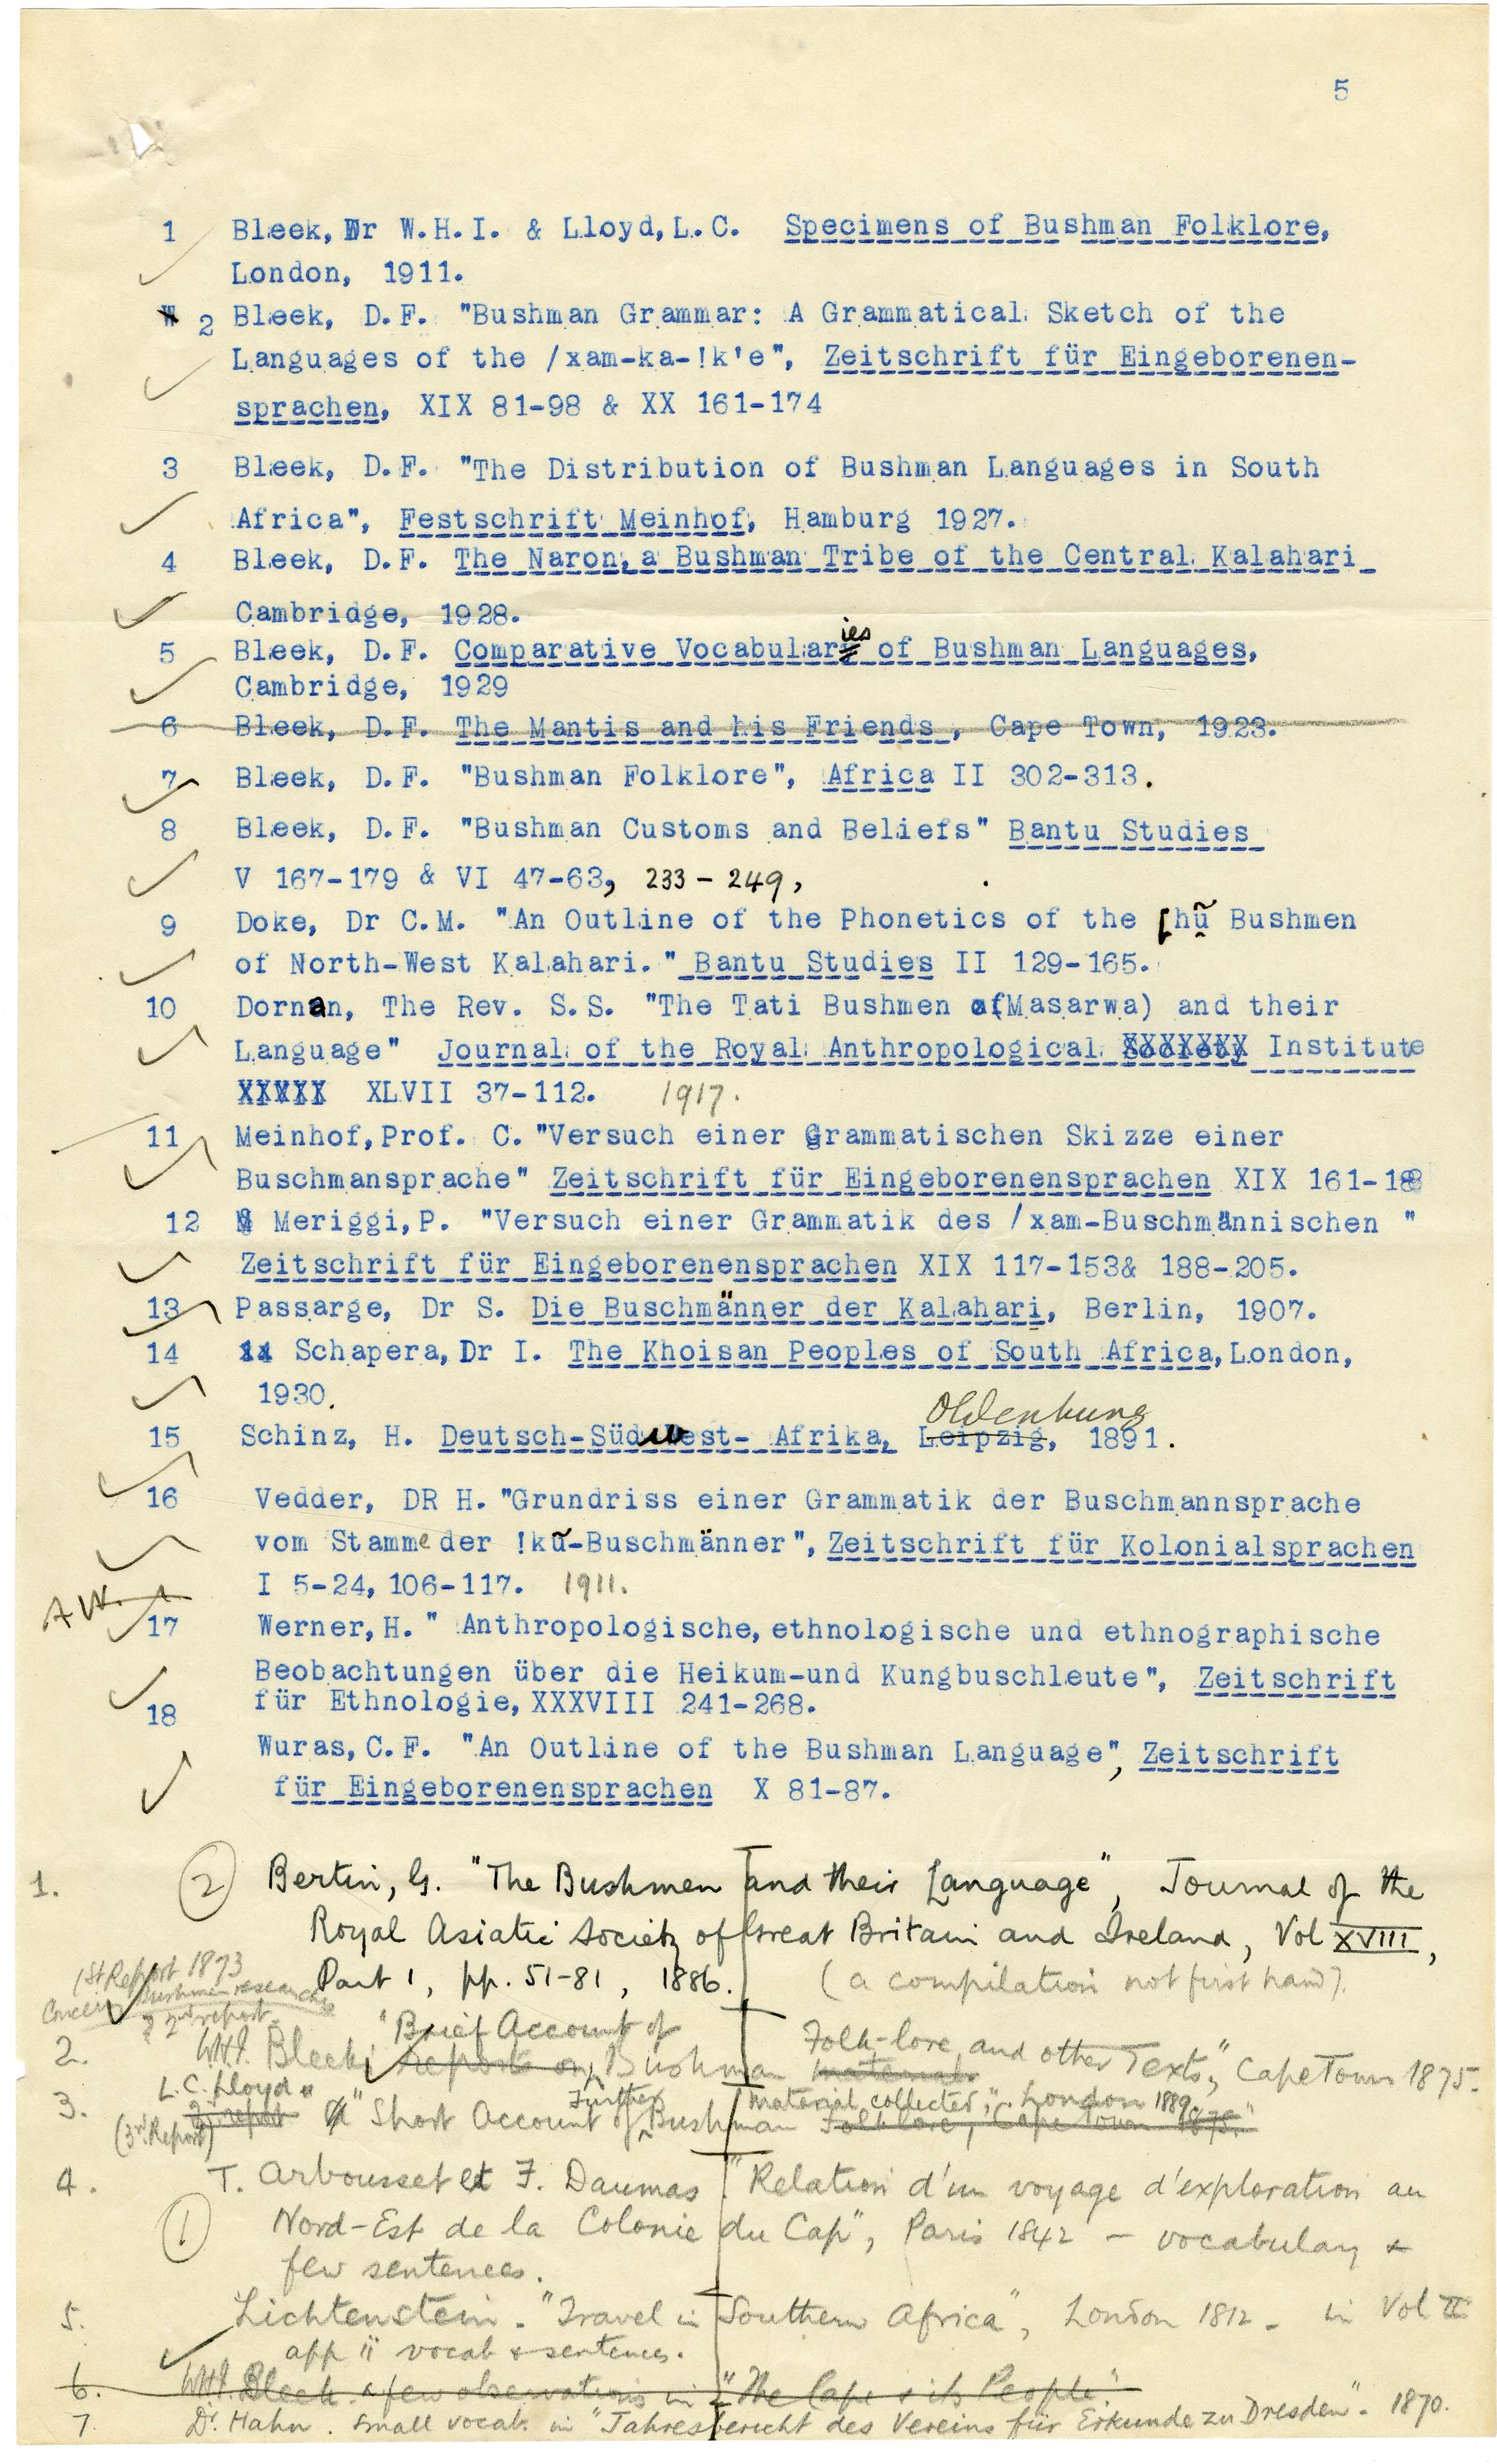 5
1 Bleek, Dr W.H.I. & Lloyd, L.C. Specimens of Bushman Folklore,
London, 1911.
2 Bleek, D.F. "Bushman Grammar: A Grammatical Sketch of the
Languages of the /xam-ka-!k'e", Zeitschrift für Eingeborenen-
sprachen, XIX 81-98 & XX 161-174
3 Bleek, D.F. "The Distribution of Bushman Languages in South
Africa", Festschrift Meinhof, Hamburg 1927.
4 Bleek, D.F. The Naron, a Bushman Tribe of the Central Kalahari
Cambridge, 1928.
5 Bleek, D.F. Comparative Vocabularies of Bushman Languages,
Cambridge, 1929
6 Bleek, D.F. The Mantis and his Friends, Cape Town, 1923.
7 Bleek, D.F. "Bushman Folklore", Africa II 302-313.
8 Bleek, D.F. "Bushman Customs and Beliefs" Bantu Studies
V 167-179 & VI 47-63, 233-249,
9 Doke, Dr C.M. "An Outline of the Phonetics of the ʗhũ̬ Bushmen
of North-West Kalahari." Bantu Studies II 129-165.
10 Dornan, The Rev. S.S. "The Tati Bushmen (Masarwa) and their
Language" Journal of the Royal Anthropological Society Institute
XXXXX XLVII 37-112. 1917.
11 Meinhof, Prof. C. "Versuch einer Grammatischen Skizze einer
Buschmansprache" Zeitschrift für Eingeborenensprachen XIX 161-188
12 Meriggi, P. "Versuch einer Grammatik des /xam-Buschmännischen "
Zeitschrift für Eingeborenensprachen XIX 117-153& 188-205.
13 Passarge, Dr S. Die Buschmänner der Kalahari, Berlin, 1907.
14 Schapera, Dr I. The Khoisan Peoples of South Africa, London,
1930.
Oldenburg
15 Schinz, H. Deutsch-Südwest- Afrika, Leipzig, 1891.
16 Vedder, DR H. "Grundriss einer Grammatik der Buschmannsprache
vom Stamme der !kũ-Buschmänner", Zeitschrift für Kolonialsprachen
I 5-24, 106-117. 1911.
17 Werner, H. " Anthropologische, ethnologische und ethnographische
Beobachtungen über die Heikum-und Kungbuschleute", Zeitschrift
für Ethnologie, XXXVIII 241-268.
18
Wuras, C.F. "An Outline of the Bushman Language", Zeitschrift
für Eingeborenensprachen X 81-87.
1. (2) Bertin, G. "The Bushmen and their Language", Journal of the
Royal Asiatic Society of Great Britain and Ireland, Vol XVIII,
Part 1, pp. 51-81, 1886. (a compilation not first hand).
1st Report 1873
Concerning Bushman researches
& 2nd report
"Brief Account of Folk-lore and other Texts", Cape Town 1875.
2. W.H.I. Bleek, reports on Bushman materials
L.C. Lloyd Further material collected", London 1889
3. (3rd Report) "Short Account of Bushman Folklore, Cape Town 1875"
4. T. Arbousset et F. Daumas "Relation d'un voyage d'exploration au
(1) Nord-Est de la Colonie du Cap", Paris 1842 - vocabulary &
few sentences.
5. Lichtenstein. "Travel in Southern Africa", London 1812 - in Vol II
app ii vocab & sentences.
6. W.H.I. Bleek. a few observations in "The Cape & its People."
7. Dr. Hahn. small vocab. in "Jahresbericht des Vereins für Erkunde zu Dresden". 1870.